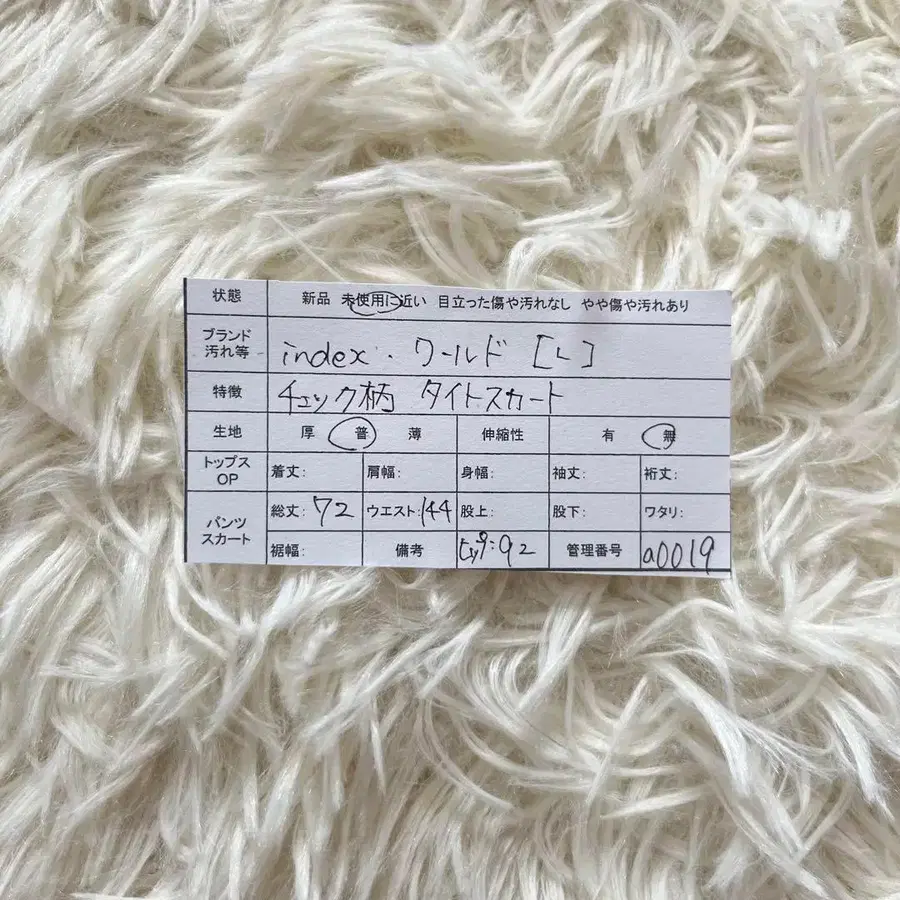 状態 新品 未使用に近い 目立った傷や汚れなし やや傷や汚れあり
ブランド
汚れ等 index・ワールド [L]
特徴 チェック柄 タイトスカート
生地 厚 普 薄 伸縮性 有 無
トップス
OP 着丈: 肩幅: 身幅: 袖丈: 裄丈:
パンツ
スカート 総丈:72 ウエスト:144 股上: 股下: ワタリ:
裾幅: 備考 ヒップ:92 管理番号 a0019